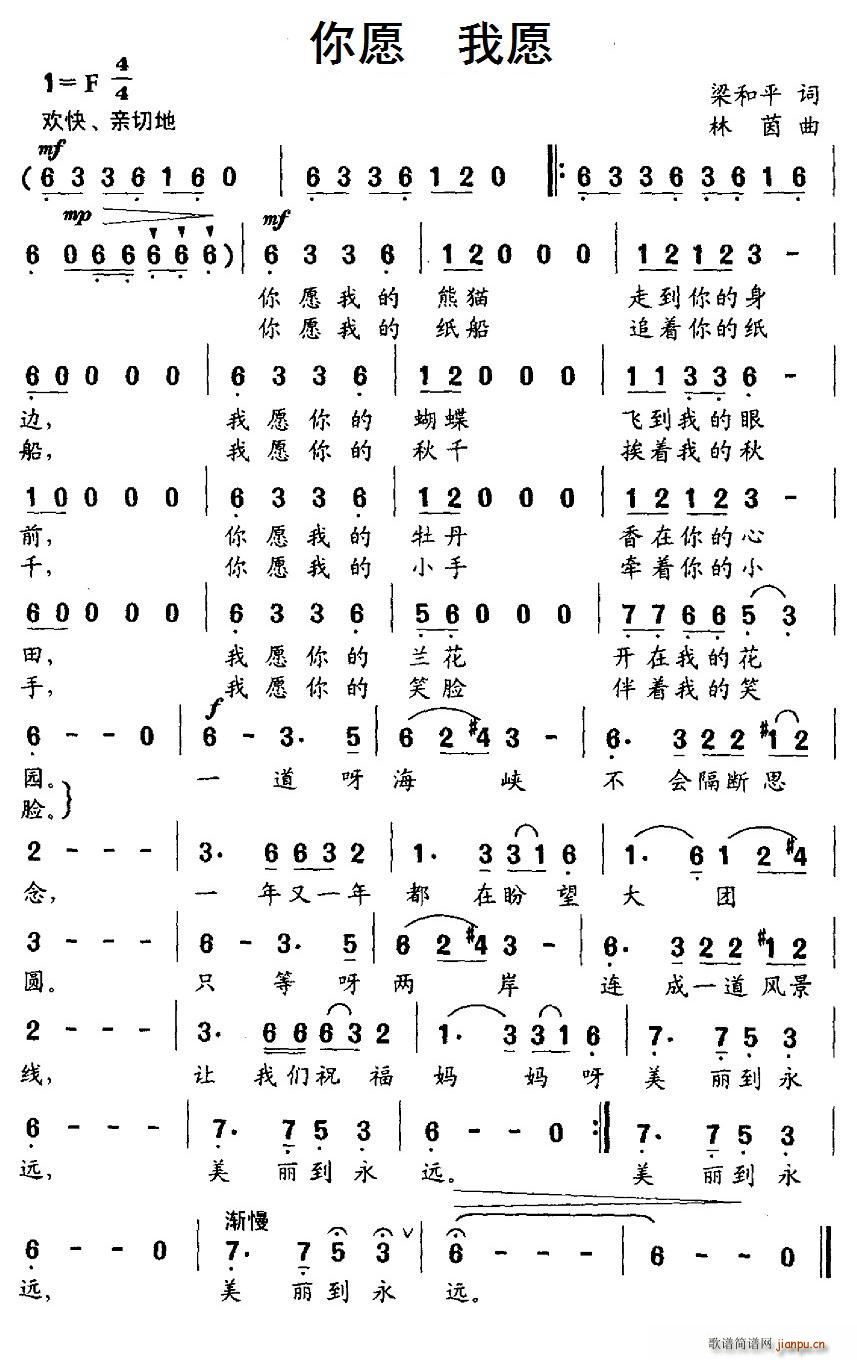 你愿 我愿
1=F 4/4
梁和平 词
欢快、亲切地
林 茵 曲
mf
(6 3 3 6 1 6 0 | 6 3 3 6 1 2 0 ‖: 6 3 3 6 3 6 1 6 |
mp mf
6 0 6 6 6 6 6) | 6 3 3 6 | 1 2 0 0 0 | 1 2 1 2 3 - |
你愿我的 熊猫 走到你的身
你愿我的 纸船 追着你的纸
6 0 0 0 0 | 6 3 3 6 | 1 2 0 0 0 | 1 1 3 3 6 - |
边, 我愿你的 蝴蝶 飞到我的眼
船, 我愿你的 秋千 挨着我的秋
1 0 0 0 0 | 6 3 3 6 | 1 2 0 0 0 | 1 2 1 2 3 - |
前, 你愿我的 牡丹 香在你的心
千, 你愿我的 小手 牵着你的小
6 0 0 0 0 | 6 3 3 6 | 5 6 0 0 0 | 7 7 6 6 5 3 |
田, 我愿你的 兰花 开在我的花
手, 我愿你的 笑脸 伴着我的笑
f
6 - - 0 | 6 - 3. 5 | 6 2 #4 3 - | 6. 3 2 2 #1 2 |
园。 一 道 呀 海 峡 不 会隔断思
脸。}
2 - - - | 3. 6 6 3 2 | 1. 3 3 1 6 | 1. 6 1 2 #4 |
念, 一 年又一年 都 在盼 望 大 团
3 - - - | 6 - 3. 5 | 6 2 #4 3 - | 6. 3 2 2 #1 2 |
圆。 只 等 呀 两 岸 连 成一道风景
2 - - - | 3. 6 6 6 3 2 | 1. 3 3 1 6 | 7. 7 5 3 |
线, 让 我们祝 福 妈 妈 呀 美 丽到永
6 - - - | 7. 7 5 3 | 6 - - 0 :‖ 7. 7 5 3 |
远, 美 丽到永 远。 美 丽到永
渐慢
6 - - 0 | 7. 7 5 3 ∨ | 6 - - - | 6 - - 0 ‖
远, 美 丽到永 远。
歌谱简谱网 jianpu.cn